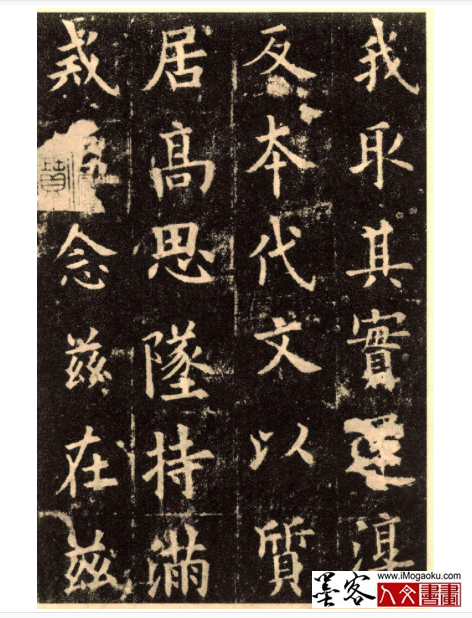 我取其實還淳
反本代文以質
居髙思墜持滿
戒念茲在茲
墨客
www.iMogaoku.com
人文書畫